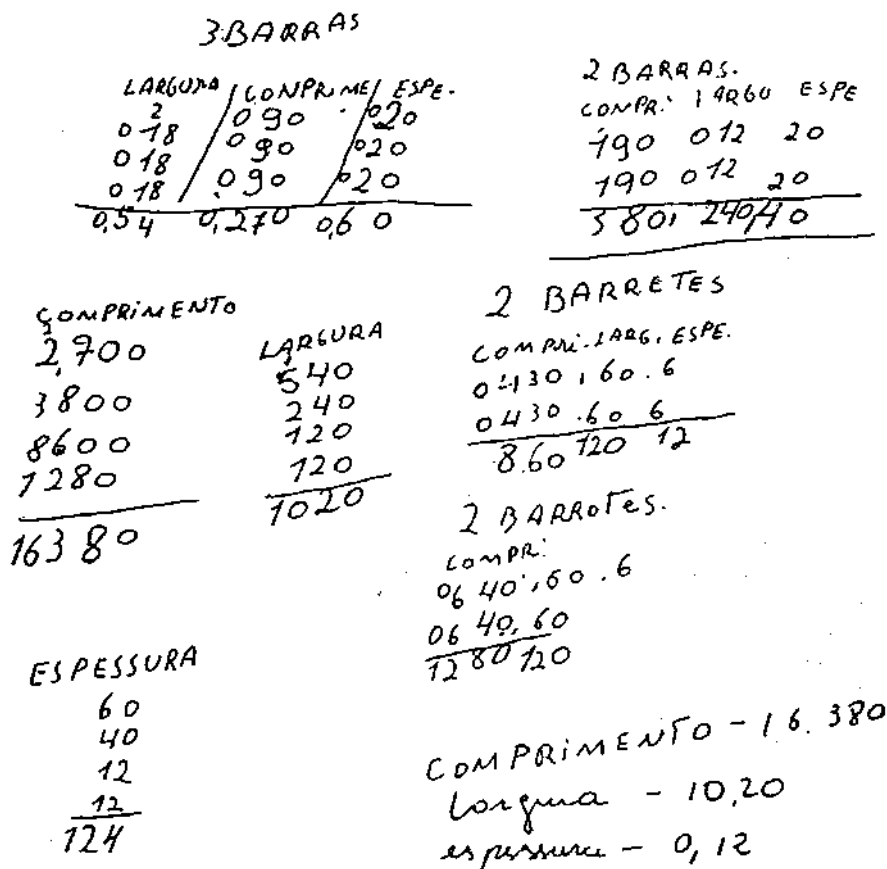 3 BARRAS
LARGURA / CONPRIME / ESPE.
2
018 / 090 / 020
018 / 090 / 020
018 / 090 / 020
0,54 0,270 0,60
2 BARRAS.
COMPR. LARGU ESPE
190 012 20
190 012 20
380, 240, 40
COMPRIMENTO
2,700
3800
8600
1280
16380
LARGURA
540
240
120
120
1020
2 BARRETES
COMPRI. LARG. ESPE.
0430, 60. 6
0430. 60 6
8.60 120 12
2 BARROTES.
COMPR.
0640, 60. 6
0640, 60
1280 120
ESPESSURA
60
40
12
12
124
COMPRIMENTO - 16.380
largura - 10,20
espessura - 0,12